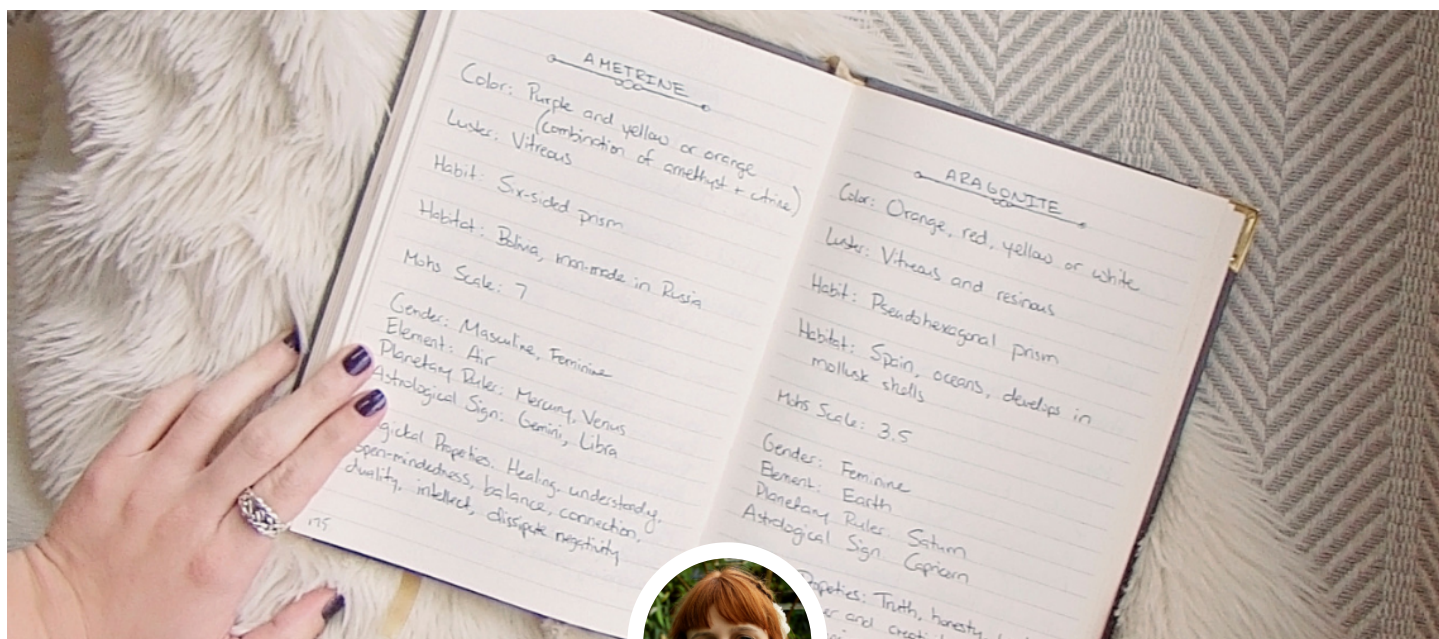 AMETRINE
Color: Purple and yellow or orange
(combination of amethyst + citrine)
Luster: Vitreous
Habit: Six-sided prism
Habitat: Bolivia, man-made in Russia
Mohs Scale: 7
Gender: Masculine, Feminine
Element: Air
Planetary Ruler: Mercury, Venus
Astrological Sign: Gemini, Libra
Properties: Healing, understanding,
open-mindedness, balance, connection,
duality, intellect, dissipate negativity
175
ARAGONITE
Color: Orange, red, yellow or white
Luster: Vitreous and resinous
Habit: Pseudohexagonal prism
Habitat: Spain, oceans, develops in
mollusk shells
Mohs Scale: 3.5
Gender: Feminine
Element: Earth
Planetary Ruler: Saturn
Astrological Sign: Capricorn
Properties: Truth, honesty,
and